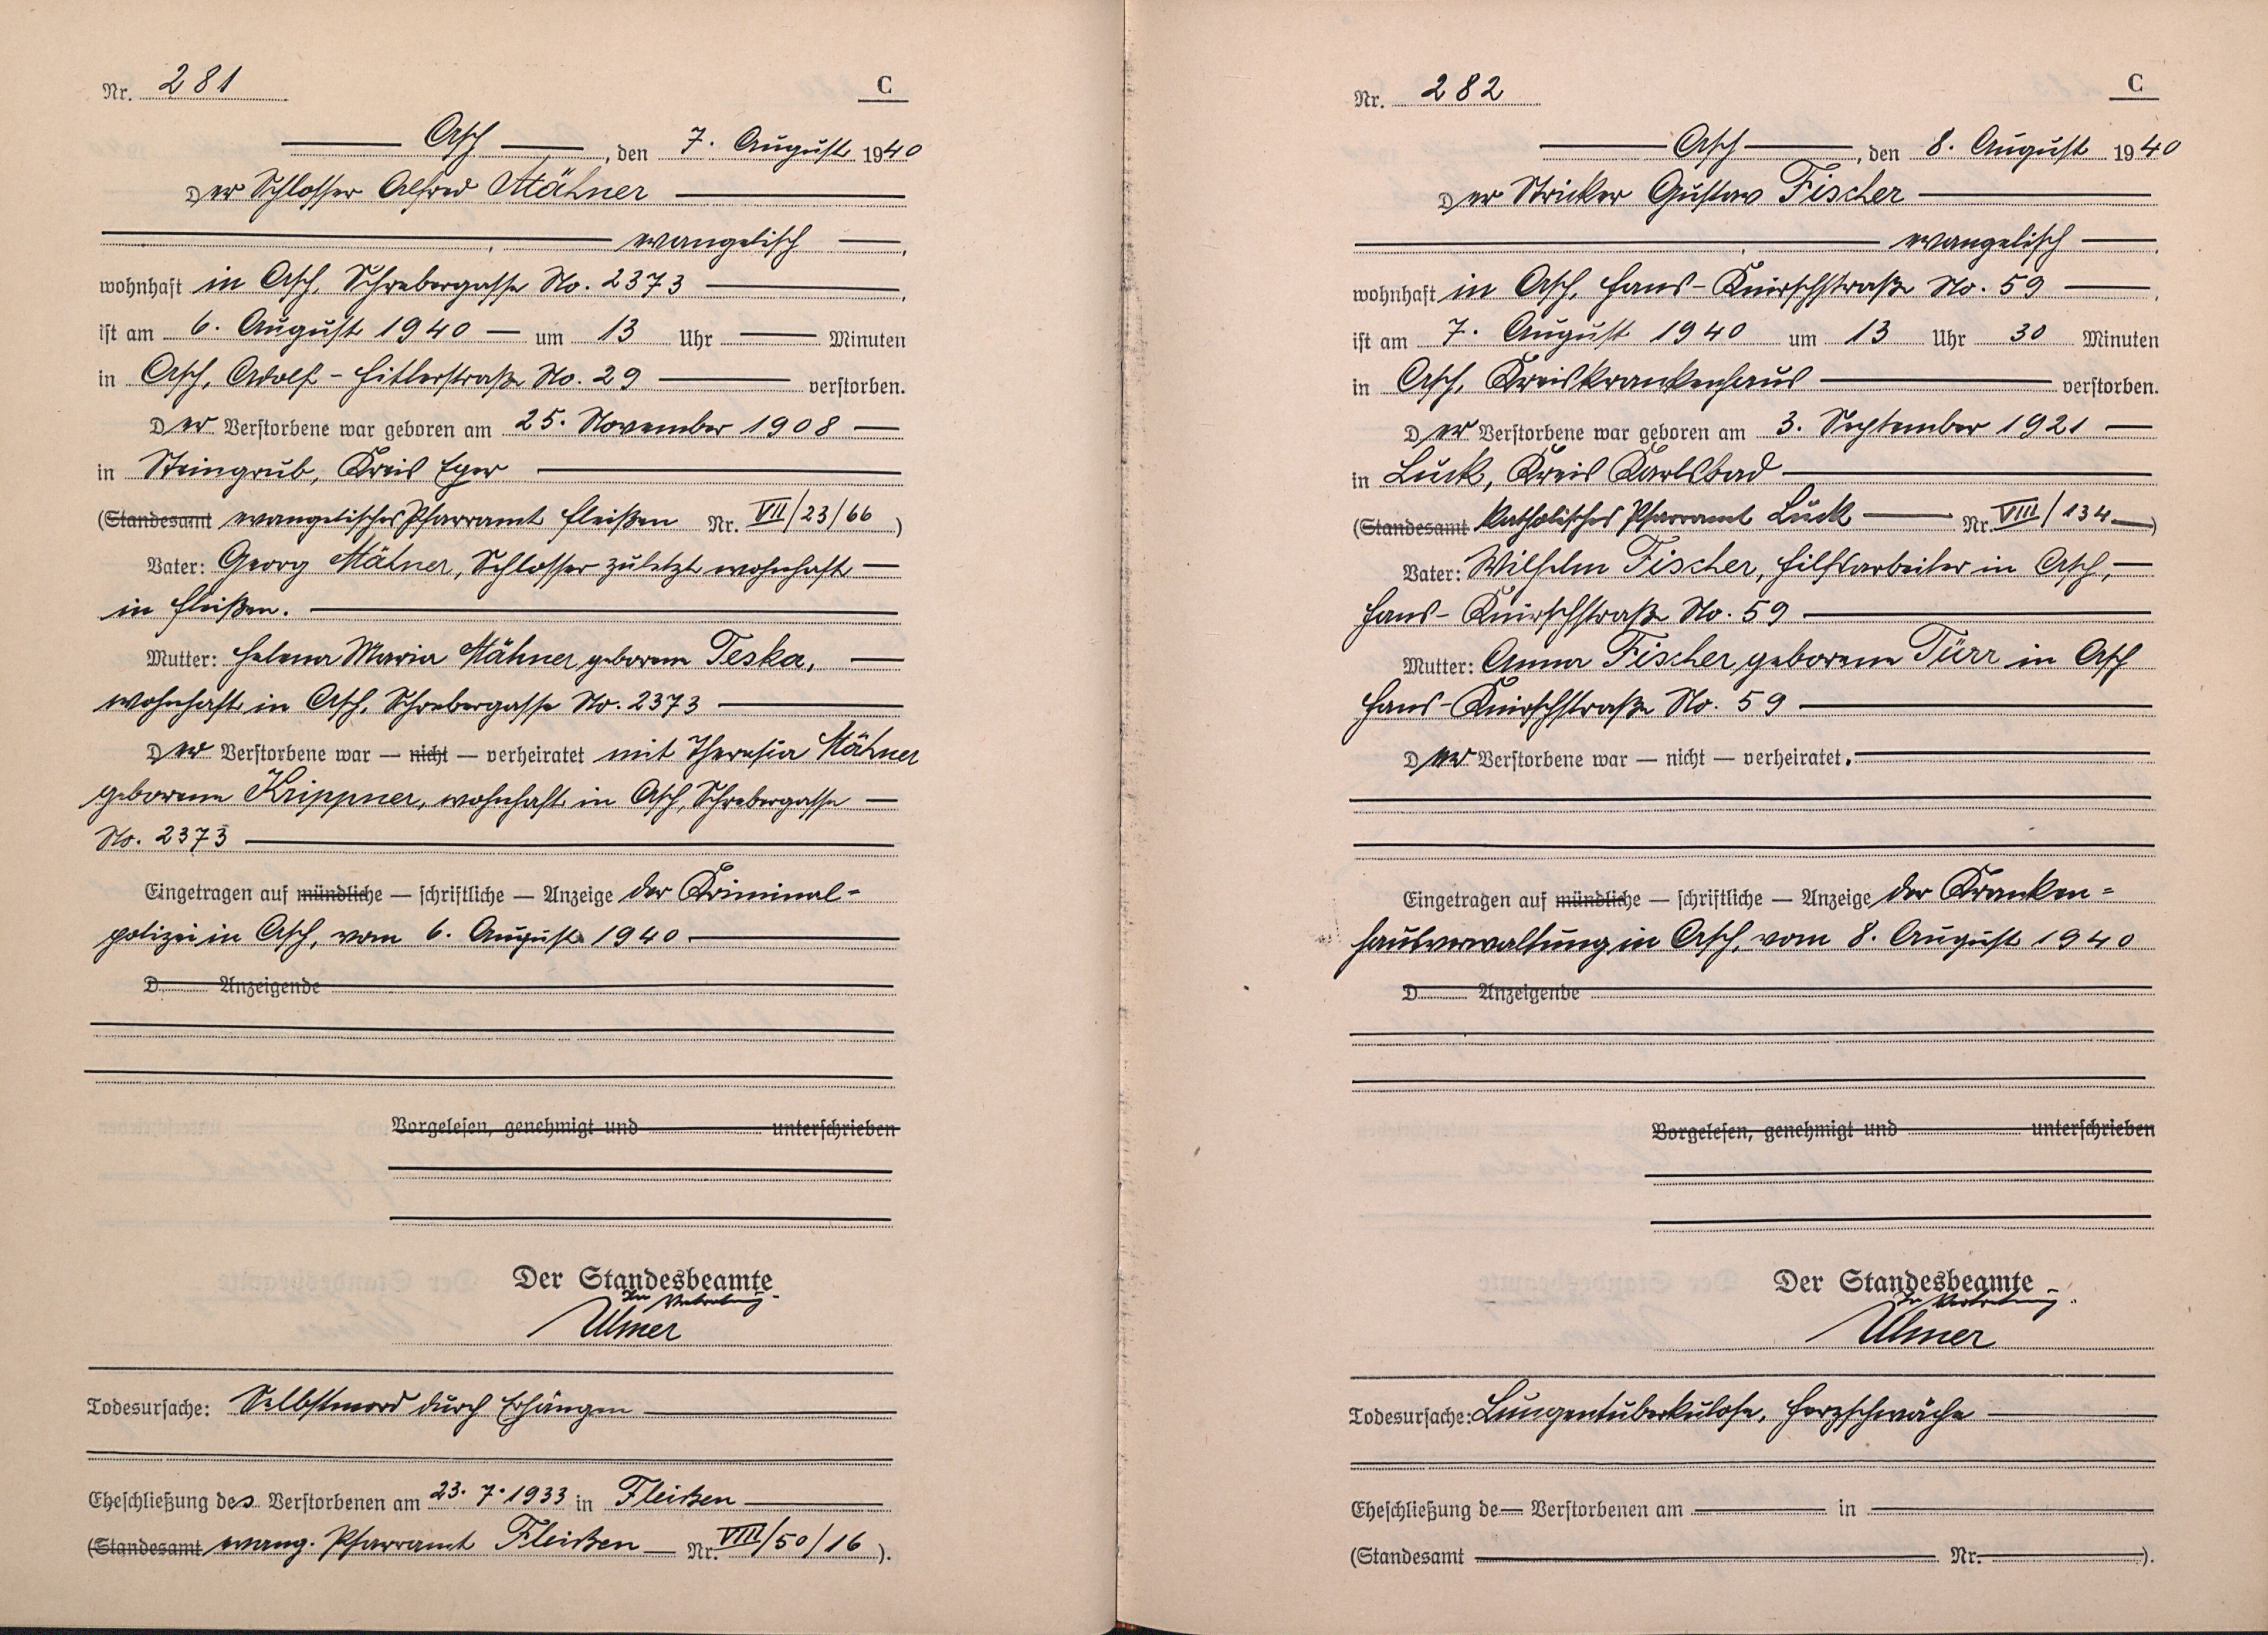 Nr. 281
C
Asch, den 7. August 1940
Der Schlosser Alfred Mähner
, evangelisch,
wohnhaft in Asch, Schrebergasse No. 2373,
ist am 6. August 1940 um 13 Uhr Minuten
in Asch, Adolf-Hitlerstraße No. 29 verstorben.
Der Verstorbene war geboren am 25. November 1908
in Steingrub, Kreis Eger
(Standesamt evangelisches Pfarramt Fleißen Nr. VII/23/66)
Vater: Georg Mähner, Schlosser zuletzt wohnhaft
in Fleißen.
Mutter: Helena Maria Mähner geborene Teska,
wohnhaft in Asch, Schrebergasse No. 2373
Der Verstorbene war — nicht — verheiratet mit Theresia Mähner
geborene Krippner, wohnhaft in Asch, Schrebergasse
No. 2373
Eingetragen auf mündliche — schriftliche — Anzeige der Kriminal=
polizei in Asch, vom 6. August 1940
D Anzeigende
Vorgelesen, genehmigt und unterschrieben
Der Standesbeamte
In Vertretung.
Ulmer
Todesursache: Selbstmord durch Erhängen
Eheschließung des Verstorbenen am 23. 7. 1933 in Fleißen
(Standesamt evang. Pfarramt Fleißen Nr. VIII/50/16).
Nr. 282
C
Asch, den 8. August 1940
Der Stricker Gustav Fischer
, evangelisch,
wohnhaft in Asch, Hans-Knirschstraße No. 59,
ist am 7. August 1940 um 13 Uhr 30 Minuten
in Asch, Kreiskrankenhaus verstorben.
Der Verstorbene war geboren am 3. September 1921
in Luck, Kreis Karlsbad
(Standesamt katholisches Pfarramt Luck Nr. VIII/134)
Vater: Wilhelm Fischer, Hilfsarbeiter in Asch,
Hans-Knirschstraße No. 59
Mutter: Anna Fischer, geborene Türr in Asch
Hans-Knirschstraße No. 59
Der Verstorbene war — nicht — verheiratet.
Eingetragen auf mündliche — schriftliche — Anzeige der Kranken=
hausverwaltung in Asch, vom 8. August 1940
D Anzeigende
Vorgelesen, genehmigt und unterschrieben
Der Standesbeamte
In Vertretung.
Ulmer
Todesursache: Lungentuberkulose, Herzschwäche
Eheschließung de Verstorbenen am in
(Standesamt Nr. ).